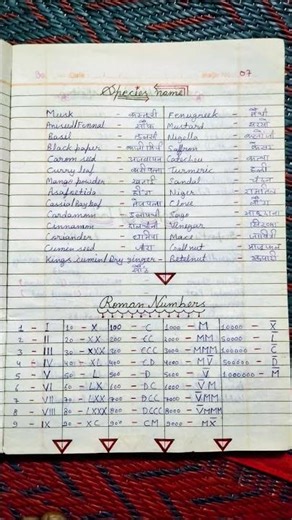 07
Species name
Musk - कस्तूरी Fenugreek - मैथी
Aniseed/Fennel - सौंफ Mustard -
Basil - तुलसी Nigella - कलौंजी
Black paper - काली मिर्च Saffron - केसर
Carom seed - अजवायन Catechu - कत्था
Curry leaf - करी पत्ता Turmeric - हल्दी
Mango powder - खटाई Sandal -
Asafoetida - हींग Niger -
Cassia/Bayleaf - तेजपत्ता Clove - लौंग
Cardamom - इलायची Sago - साबूदाना
Cinnamon - दालचीनी Vinegar - सिरका
Coriander - धनिया Mace - जावित्री
Cumen seed - जीरा Gallnut -
Kings cumin/Dry ginger - Betelnut - सुपारी
सोंठ
Roman Numbers
1 - I 10 - X 100 - C 1000 - M 10000 - X̅
2 - II 20 - XX 200 - CC 2000 - MM 50000 - L̅
3 - III 30 - XXX 300 - CCC 3000 - MMM 100000 - C̅
4 - IV 40 - XL 400 - CD 4000 - MV̅ 500000 - D̅
5 - V 50 - L 500 - D 5000 - V̅ 1000000 - M̅
6 - VI 60 - LX 600 - DC 6000 - V̅M
7 - VII 70 - LXX 700 - DCC 7000 - V̅MM
8 - VIII 80 - LXXX 800 - DCCC 8000 - V̅MMM
9 - IX 90 - XC 900 - CM 9000 - MX̅